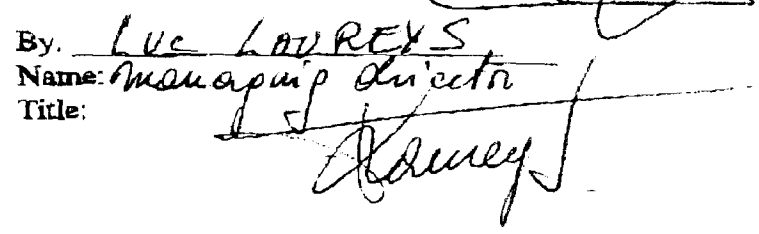 By. Luc LAUREYS
Name: Managing director
Title:
Laureys